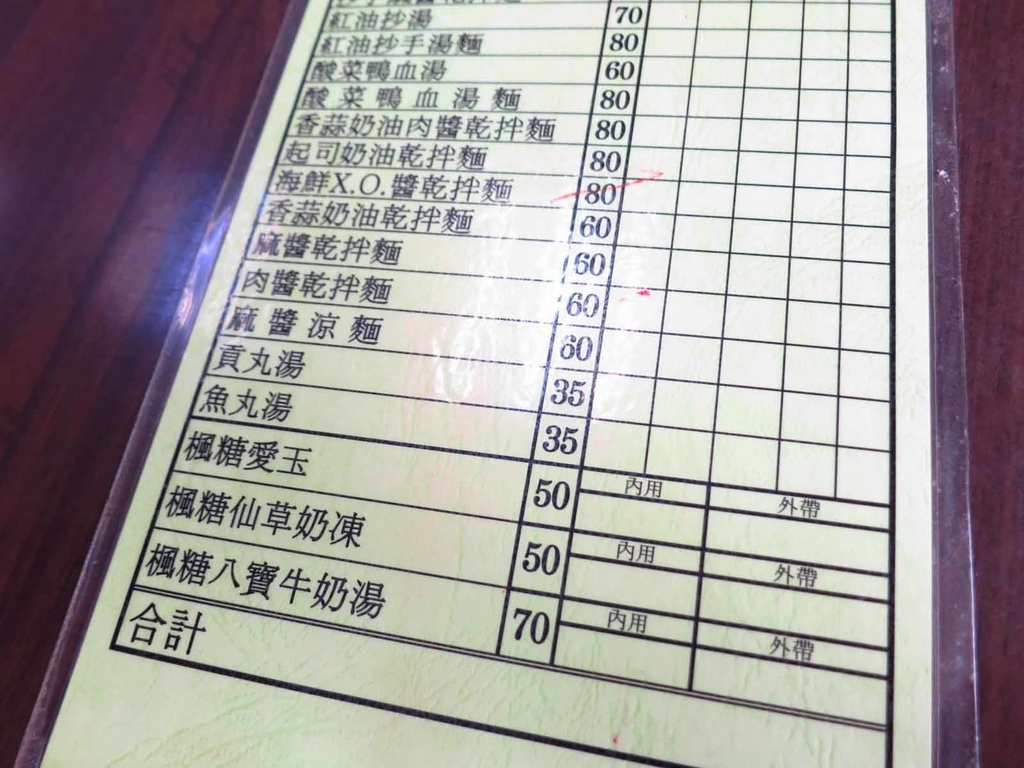 紅油抄湯 70
紅油抄手湯麵 80
酸菜鴨血湯 60
酸菜鴨血湯麵 80
香蒜奶油肉醬乾拌麵 80
起司奶油乾拌麵 80
海鮮X.O.醬乾拌麵 80
香蒜奶油乾拌麵 60
麻醬乾拌麵 60
肉醬乾拌麵 60
麻醬涼麵 60
貢丸湯 35
魚丸湯 35
楓糖愛玉 50 內用 外帶
楓糖仙草奶凍 50 內用 外帶
楓糖八寶牛奶湯 70 內用 外帶
合計